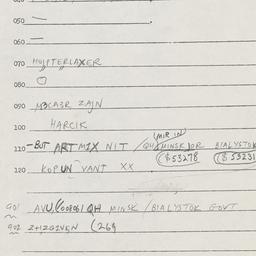 050
060
070 HUSPTERLAXER
080
090 M3CA3R ZAJN
100 HARCIK
MIR IN
110 - BUT ART MIX NIT / QH MINSK OR BIALYSTOK
($53278 ($53231
120 KOP UN VANT XX
901 AVU, QH MINSK / BIALYSTOK GOVT
902 (269